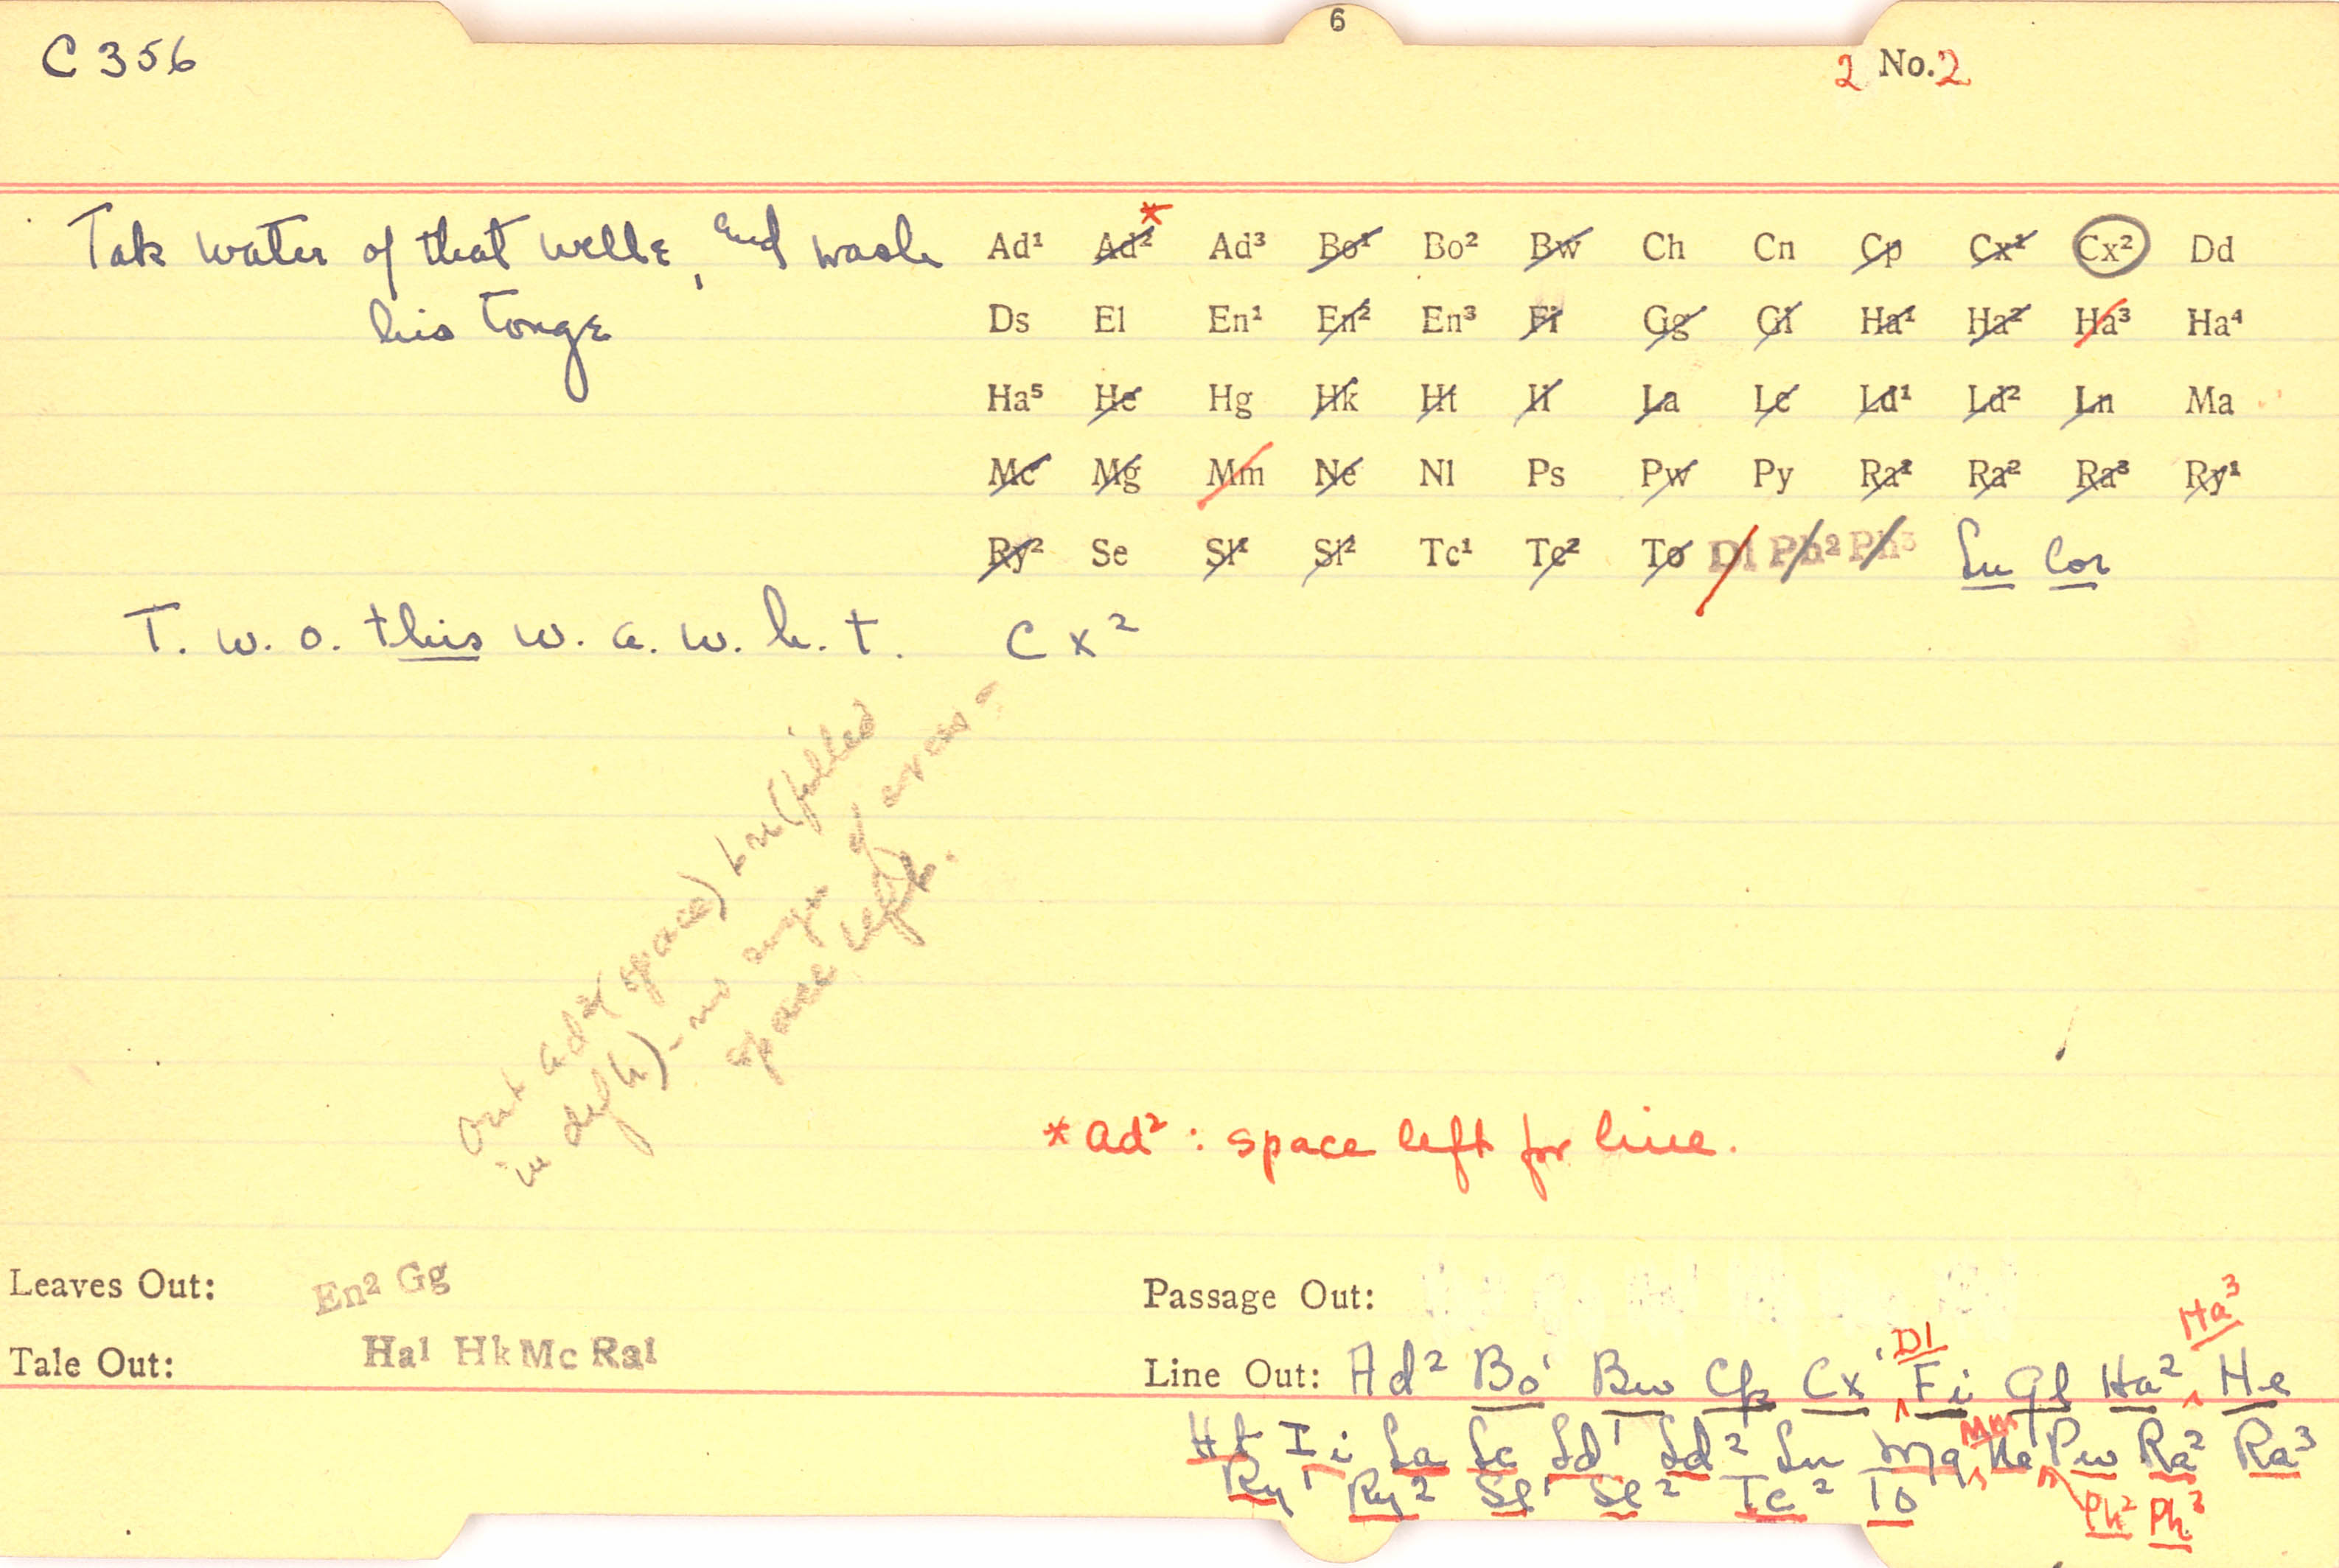 6
C 356
2 No. 2
Tak water of that welle, and wash
his tonge
Ad¹ Ad²* Ad³ Bo¹ Bo² Bw Ch Cn Cp Cx¹ Cx² Dd
Ds El En¹ En² En³ Fi Gg Gl Ha¹ Ha² Ha³ Ha⁴
Ha⁵ He Hg Hk Ht Ii La Lc Ld¹ Ld² Ln Ma
Mc Mg Mm Ne Nl Ps Pw Py Ra¹ Ra² Ra³ Ry¹
Ry² Se Sl¹ Sl² Tc¹ Tc² To Dl Ph² Ph³ Ln Cor
T. w. o. this w. a. w. h. t. Cx²
Out Ad² (space) Ln (filled
in deft) - no
space left.
* Ad² : space left for line.
Leaves Out: En² Gg
Tale Out: Ha¹ Hk Mc Ra¹
Passage Out:
Line Out: Ad² Bo¹ Bw Cp Cx¹ Dl Fi Gl Ha² Ha³ He
Ht Ii La Lc Ld¹ Ld² Ln Mg Mm Ne Pw Ra² Ra³
Ry¹ Ry² Sl¹ Sl² Tc² To Ph² Ph³